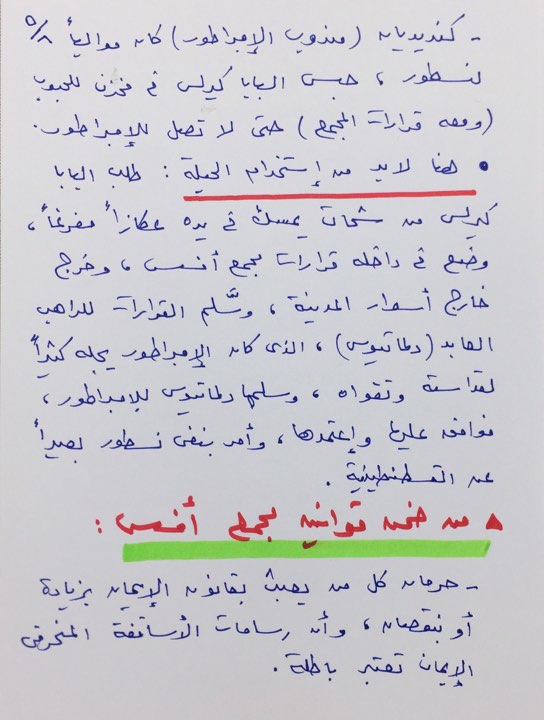 ٥/٨
- كنديديان (مندوب الإمبراطور) كان موالياً
لنسطور، حبس البابا كيرلس في مخزن للحبوب
(ومعه قرارات المجمع) حتى لا تصل للإمبراطور.
• هنا لابد من إستخدام الحيلة: طلب البابا
كيرلس من شحات يمسك في يده عكازاً مفرغاً،
وضع في داخله قرارات مجمع أفسس، وخرج
خارج أسوار المدينة، وسَّلم القرارات للراهب
العابد (دلماتيوس)، الذى كان الإمبراطور يجله كثيراً
لقداسته وتقواه، وسلمها دلماتيوس للإمبراطور،
فوافق عليها وإعتمدها، وأمر بنفى نسطور بعيداً
عن القسطنطينية.
من ضمن قوانين مجمع أفسس:
- حرمان كل من يعبث بقانون الإيمان بزيادة
أو بنقصان، وأن رسامات الأساقفة المنحرفى
الإيمان تعتبر باطلة.